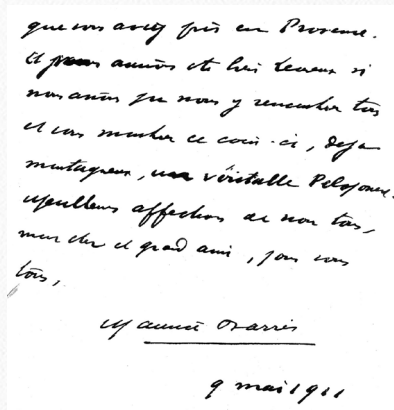 que vous avez pris en Provence.
Et nous aurions été bien heureux si
nous avions pu nous y rencontrer tous
et vous montrer ce coin-ci, déjà
montagneux, un véritable Péloponnèse.
Meilleures affections de nous tous,
mon cher et grand ami, pour vous
tous,
Maurice Barrès
9 mai 1911